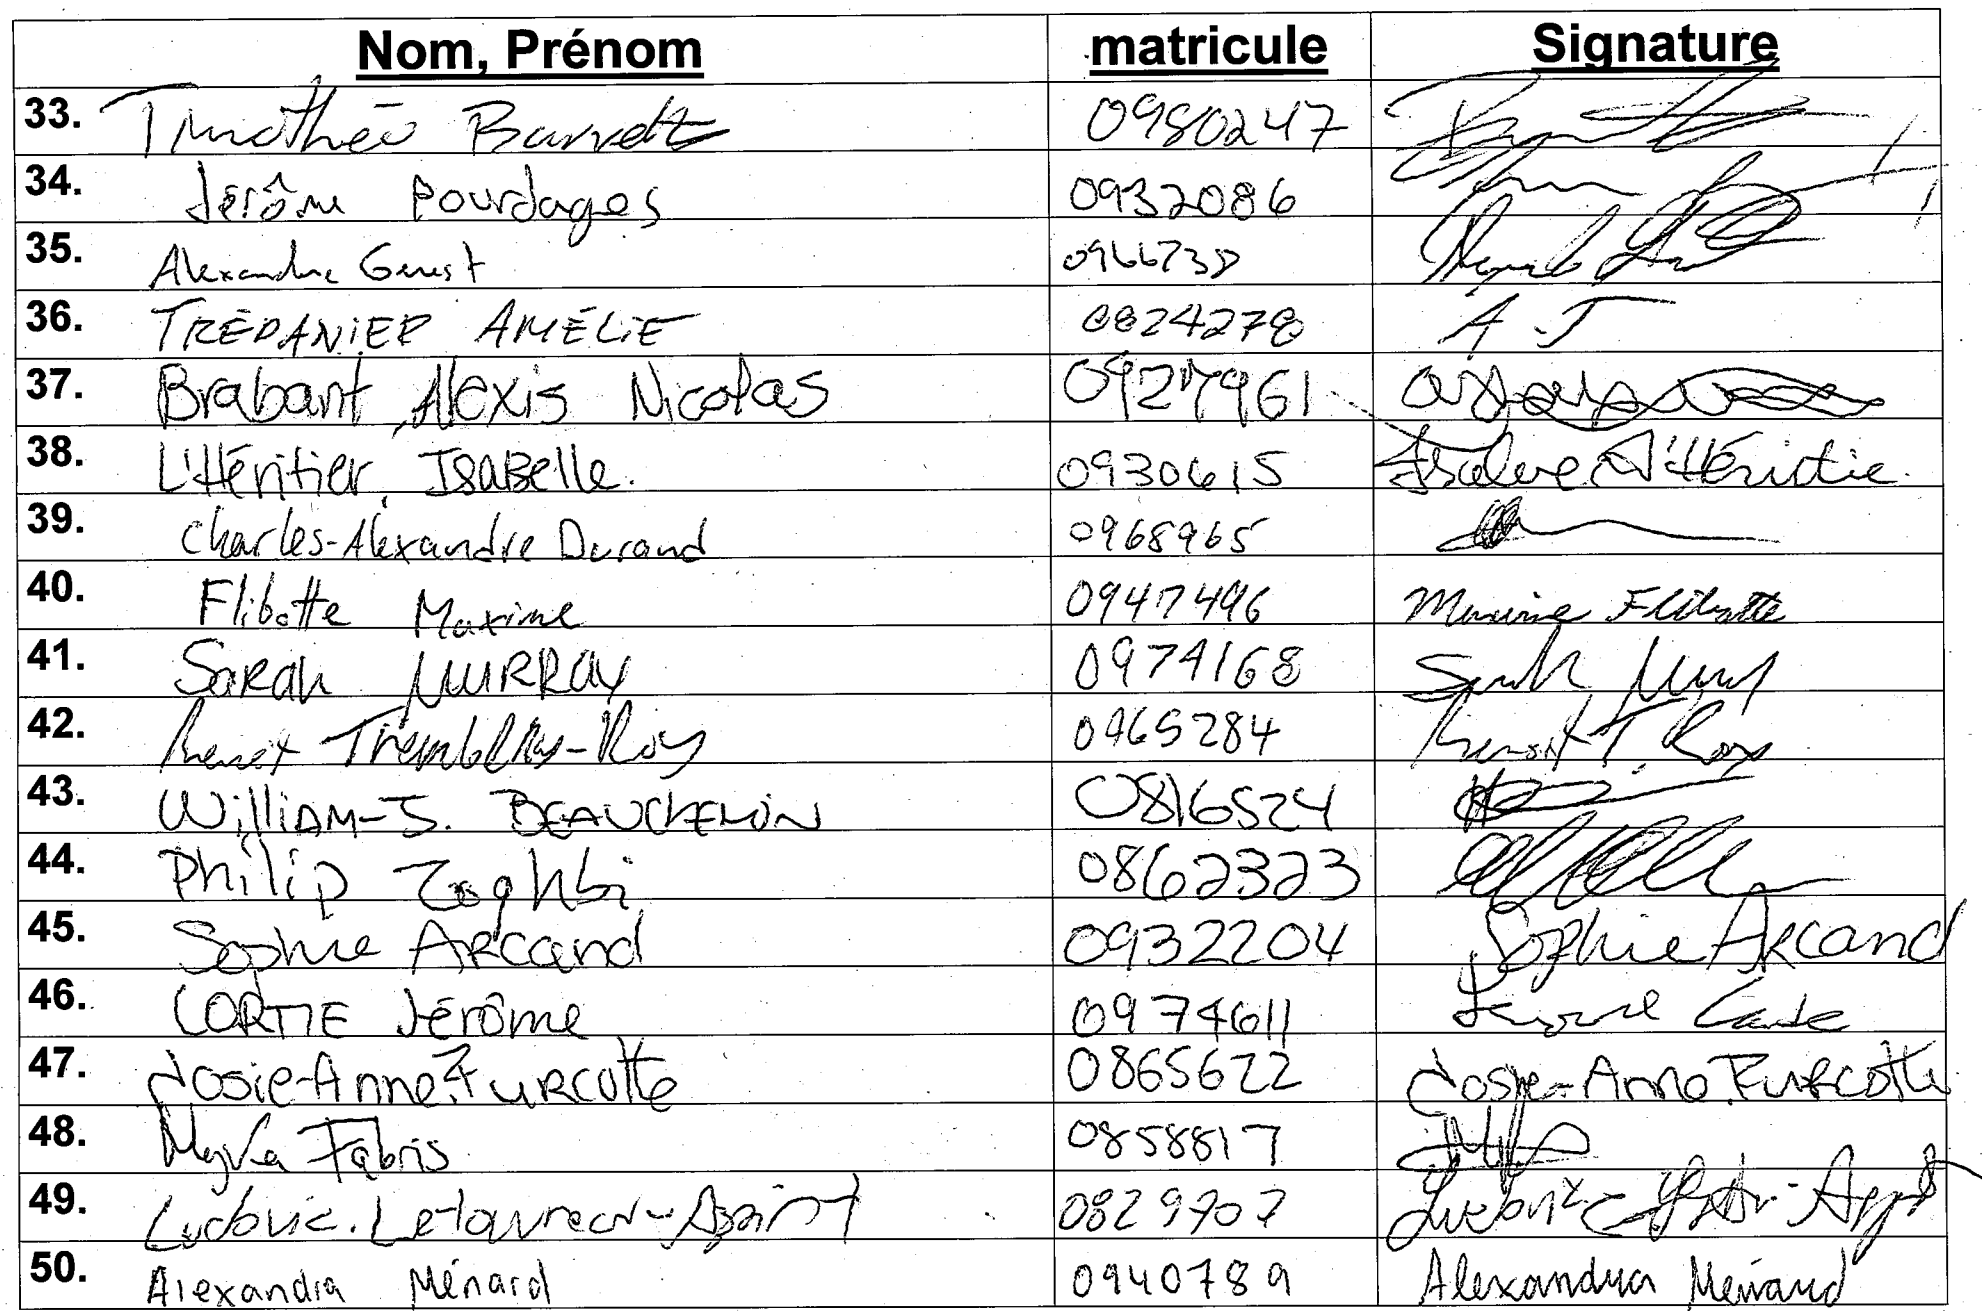 Nom, Prénom matricule Signature
33. Timothée 0980247
34. Jérôme Pourdages 0932086
35. Alexandre Genest 0966738
36. TRÉPANIER AMÉLIE 0824278 A.T
37. Brabant, Alexis Nicolas 0927961
38. L'Héritier, Isabelle. 0930615 L'Héritie.
39. Charles-Alexandre Durand 0968965
40. Flibotte Maxime 0947496 Maxime Flibotte
41. SARAh MURRAY 0974168 Sarah
42. Benoit Tremblay-Roy 0965284 Benoit T. Roy
43. WilliAM-J. BEAUCHEMIN 0816524
44. Philip Zoghbi 0862323
45. Sophie Arcand 0932204 Sophie Arcand
46. CORTIE Jérôme 0974611 Jérôme
47. Josie-Anne Turcotte 0865622 Josie-Anne Turcotte
48. Fabris 0858817
49. Ludovic Letourneau- 0829707
50. Alexandra Ménard 0940789 Alexandra Ménard